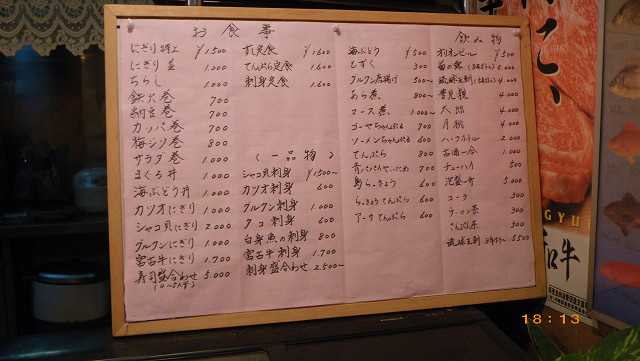 お食事
にぎり特上 ¥1500
にぎり並 1.000
ちらし 1.000
鉄火巻 700
納豆巻 700
カッパ巻 700
梅シソ巻 800
サラダ巻 1.000
まぐろ丼 1.000
海ぶどう丼 1.000
カツオにぎり 1.000
シャコ貝にぎり 2.000
グルクンにぎり 1.000
宮古牛にぎり 1.700
寿司盛合わせ 5.000
すし定食 ¥1600
てんぷら定食 1.600
刺身定食 1.600
(一品物)
シャコ貝刺身 ¥1500~
カツオ刺身 600
グルクン刺身 1.000
タコ刺身 600
白身魚の刺身 800
宮古牛刺身 1.700
刺身盛合わせ 2.500~
海ぶどう ¥500
もずく 300
グルクン唐揚げ 500~
あら煮 800~
マース煮 1.000~
ゴーヤちゃんぷる 700
ソーメンちゃんぷる 600
てんぷら 800
青パパイヤ 700
島らっきょう 600
らっきょうてんぷら 600
アーサてんぷら 600
飲み物
オリオンビール ¥500
菊の露 5.000
琉球王朝 4.000
豊見親 4.000
太郎 4.000
月桃 4.000
ハーフボトル 2.000
古酒一合 1.000
チューハイ 500
泡盛一合 500
コーラ 300
ウーロン茶 300
さんぴん茶 300
琉球王朝 5500
和牛
18:13